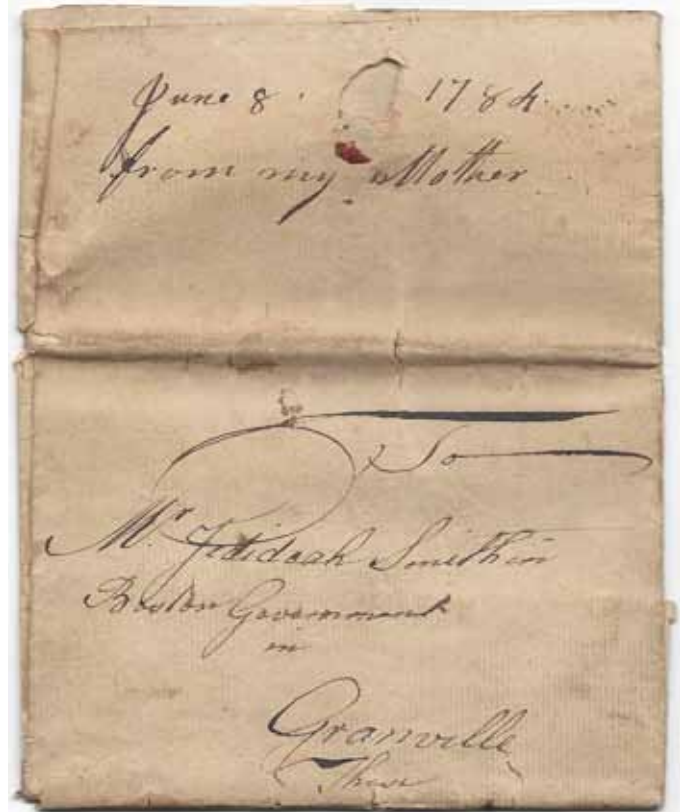 June 8. 1784.
from my Mother
To
Mr. Jedidaah Smith in
Boston Government
in
Granville
These